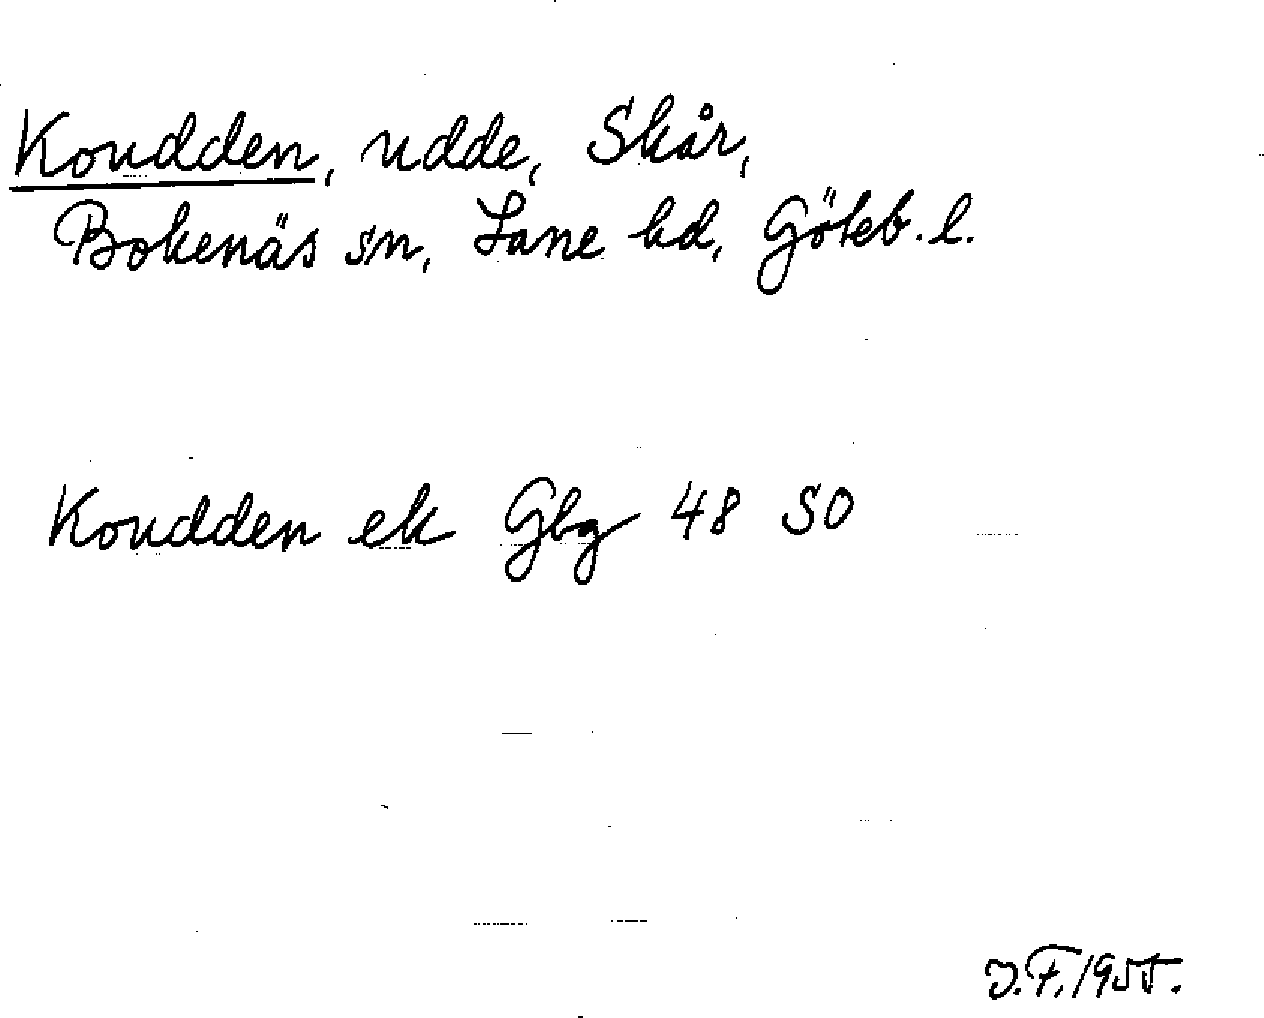 Koudden, udde, Skår,
Bokenäs sn, Lane hd, Göteb. l.
Koudden ek Gbg 48 SO
J.F. 1955.